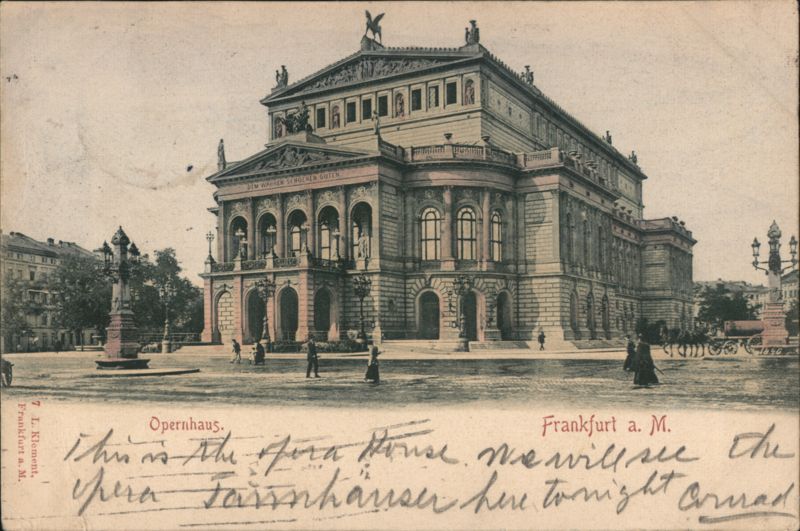 DEM WAHREN SCHOENEN GUTEN
Opernhaus.
Frankfurt a. M.
7 L. Klement,
Frankfurt a. M.
This is the opera House. We will see the
opera Tannhäuser here tonight Conrad